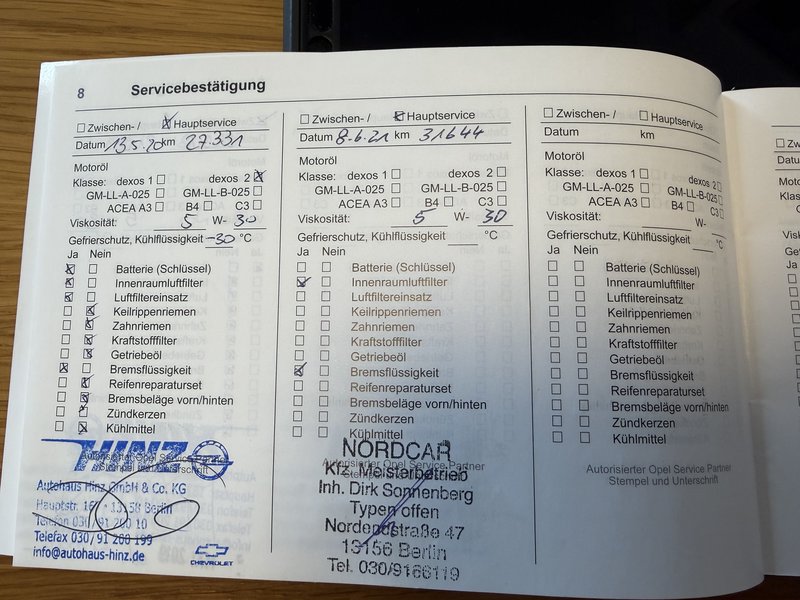 8 Servicebestätigung
Zwischen-/ Hauptservice
Datum 13.5.20 km 27.331
Motoröl
Klasse: dexos 1 dexos 2
GM-LL-A-025 GM-LL-B-025
ACEA A3 B4 C3
Viskosität: 5 W- 30
Gefrierschutz, Kühlflüssigkeit -30 °C
Ja Nein
Batterie (Schlüssel)
Innenraumluftfilter
Luftfiltereinsatz
Keilrippenriemen
Zahnriemen
Kraftstofffilter
Getriebeöl
Bremsflüssigkeit
Reifenreparaturset
Bremsbeläge vorn/hinten
Zündkerzen
Kühlmittel
HINZ
Autorisierter Opel Service Partner
Stempel und Unterschrift
Autohaus Hinz GmbH & Co. KG
Hauptstr. Berlin
Telefon 030/91 200 10
Telefax 030/91 200 199
info@autohaus-hinz.de
CHEVROLET
Zwischen-/ Hauptservice
Datum 8.6.21 km 31644
Motoröl
Klasse: dexos 1 dexos 2
GM-LL-A-025 GM-LL-B-025
ACEA A3 B4 C3
Viskosität: 5 W- 30
Gefrierschutz, Kühlflüssigkeit °C
Ja Nein
Batterie (Schlüssel)
Innenraumluftfilter
Luftfiltereinsatz
Keilrippenriemen
Zahnriemen
Kraftstofffilter
Getriebeöl
Bremsflüssigkeit
Reifenreparaturset
Bremsbeläge vorn/hinten
Zündkerzen
Kühlmittel
NORDCAR
Autorisierter Opel Service Partner
Kfz. Meisterbetrieb
Inh. Dirk Sonnenberg
Typen offen
Nordendstraße 47
13156 Berlin
Tel. 030/9166119
Zwischen-/ Hauptservice
Datum km
Motoröl
Klasse: dexos 1 dexos 2
GM-LL-A-025 GM-LL-B-025
ACEA A3 B4 C3
Viskosität: W-
Gefrierschutz, Kühlflüssigkeit °C
Ja Nein
Batterie (Schlüssel)
Innenraumluftfilter
Luftfiltereinsatz
Keilrippenriemen
Zahnriemen
Kraftstofffilter
Getriebeöl
Bremsflüssigkeit
Reifenreparaturset
Bremsbeläge vorn/hinten
Zündkerzen
Kühlmittel
Autorisierter Opel Service Partner
Stempel und Unterschrift